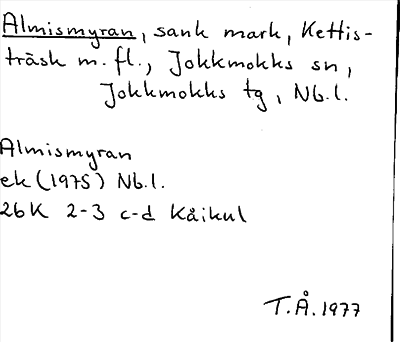 Almismyran, sank mark, Kettis-
träsk m. fl., Jokkmokks sn,
Jokkmokks tg, Nb. l.
Almismyran
ek (1975) Nb. l.
26K 2-3 c-d Kåikul
T.Å. 1977